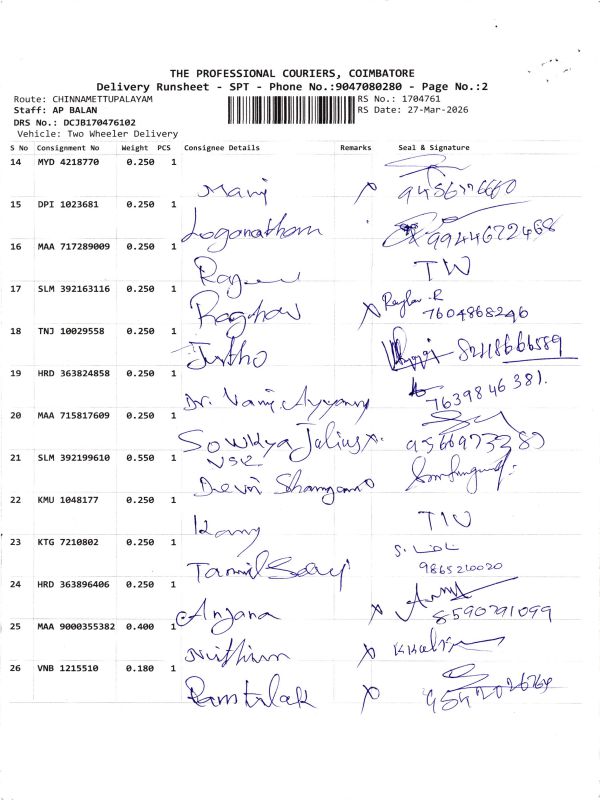 THE PROFESSIONAL COURIERS, COIMBATORE
Delivery Runsheet - SPT - Phone No.:9047080280 - Page No.:2
Route: CHINNAMETTUPALAYAM
RS No.: 1704761
Staff: AP BALAN
RS Date: 27-Mar-2026
DRS No.: DCJB170476102
Vehicle: Two Wheeler Delivery
S No Consignment No Weight PCS Consignee Details Remarks Seal & Signature
14 MYD 4218770 0.250 1
Mani
15 DPI 1023681 0.250 1
Loganatham 9944672468
16 MAA 717289009 0.250 1
TW
17 SLM 392163116 0.250 1
Raghav Raghav R
7604868246
18 TNJ 10029558 0.250 1
19 HRD 363824858 0.250 1
Dr. Vanj Ayyanny 7639846381.
20 MAA 715817609 0.250 1
Sowkya Julius
21 SLM 392199610 0.550 1
Devi
22 KMU 1048177 0.250 1
23 KTG 7210802 0.250 1
9865210020
24 HRD 363896406 0.250 1
Anjana 8590791099
25 MAA 9000355382 0.400 1
Nithin
26 VNB 1215510 0.180 1
Ramtilak